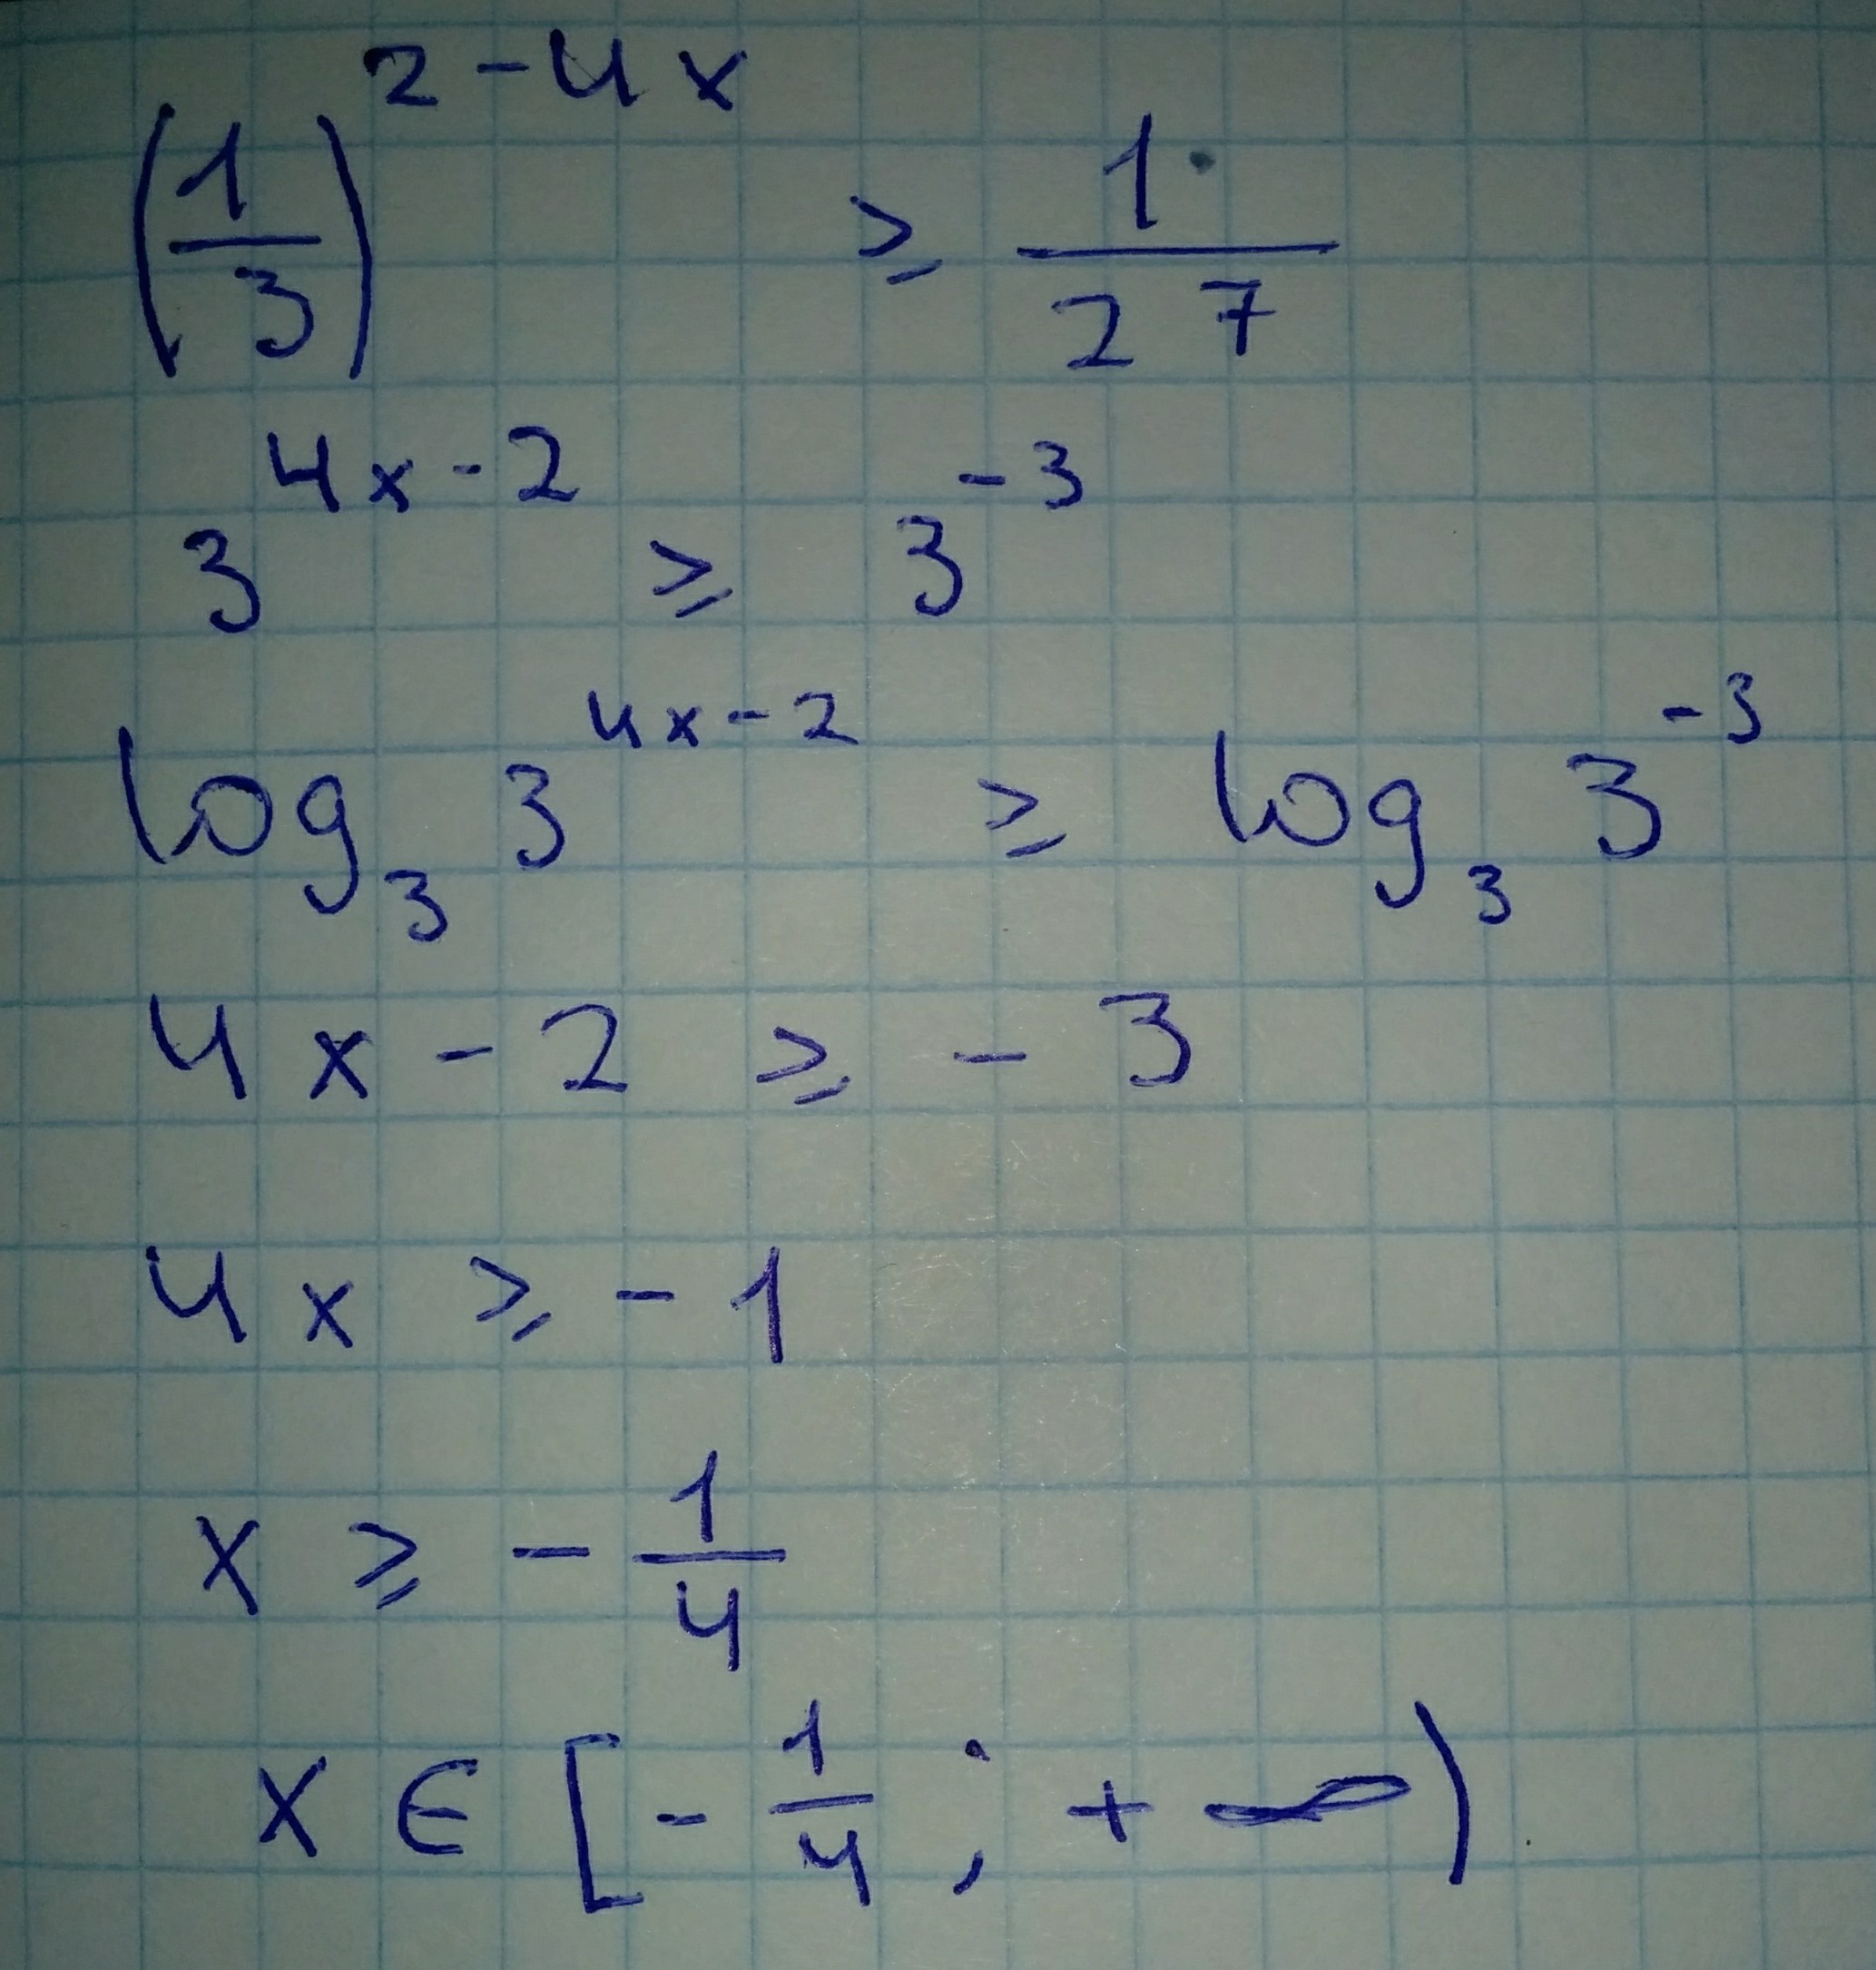 (1/3)^(2-4x) ⩾ 1/27
3^(4x-2) ⩾ 3^(-3)
log₃ 3^(4x-2) ⩾ log₃ 3^(-3)
4x - 2 ⩾ - 3
4x ⩾ - 1
x ⩾ - 1/4
x ∈ [- 1/4 ; + ∞)